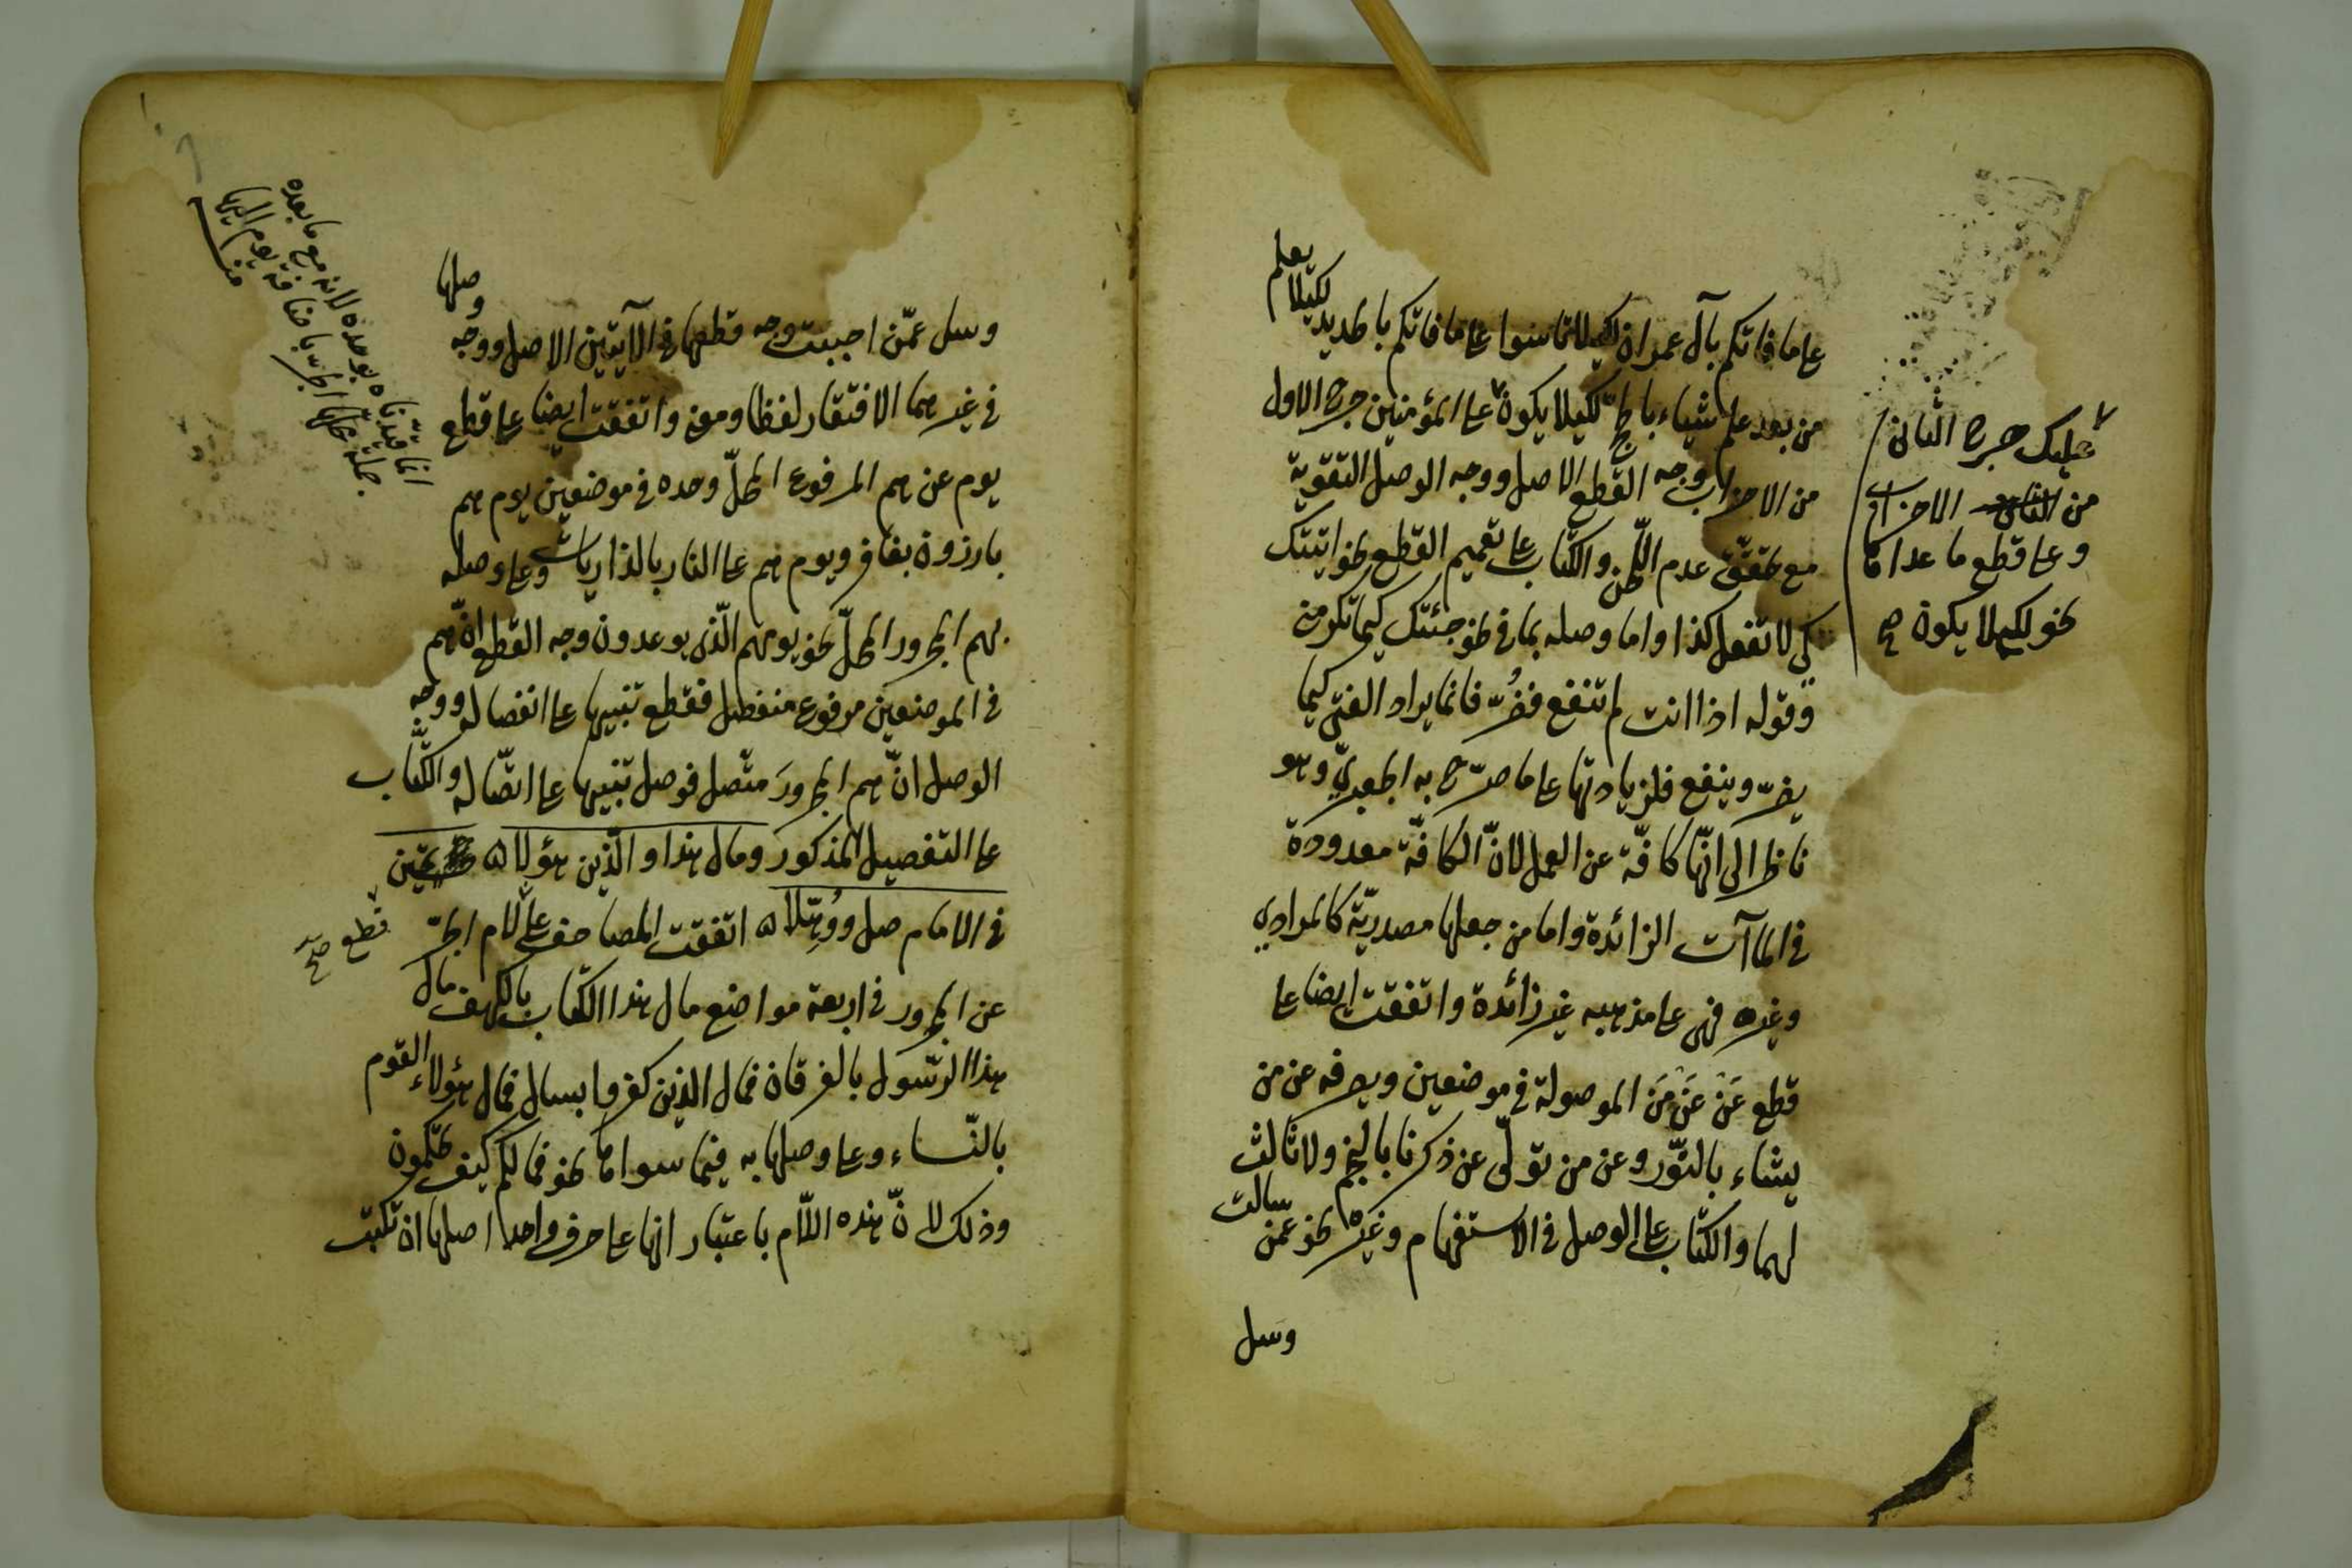 على ما فاتكم بآل عمران لكيلا تأسوا على ما فاتكم بالحديد لكيلا يعلم
من بعد علم شيئا بالحج لكيلا يكون على المؤمنين حرج الاول
من الاحزاب وجه القطع الاصل ووجه الوصل التقوية
مع تحقق عدم اللحن والكتاب على تعميم القطع نحو اتيتك
كي لا تفعل كذا واما وصله بما في نحو جئتك كيما تكرمني
وقوله اذا انت لم تنفع فضر فانما يراد الفتى كيما
يضر وينفع فلزيادتها على ما صرح به الجعبري وهو
ناظر الى انها كافة عن العمل لان الكافة معدودة
في الماآت الزائدة واما من جعلها مصدرية كالمرادي
وغيره فهي على مذهبه غير زائدة واتفقت ايضا على
قطع عن عن من الموصولة في موضعين ويصرفه عن من
يشاء بالنور وعن من تولى عن ذكرنا بالنجم ولا ثالث
لهما والكتاب على الوصل في الاستفهام وغيره نحو عمن سالت
وسل
عليك حرج الثاني
من الاحزاب
وعلى قطع ما عداها
نحو لكي لا يكون صح
وسل عمن اجبت وجه قطعها في الآيتين الاصل ووجه وصلها
في غيرهما الافتقار لفظا ومعنى واتفقت ايضا على قطع
يوم عن هم المرفوع المحل وحده في موضعين يوم هم
بارزون بغافر ويوم هم على النار بالذاريات وعلى وصله
بهم المجرور المحل نحو يومهم الذي يوعدون وجه القطع ان هم
في الموضعين مرفوع منفصل فقطع تنبيها على انفصاله ووجه
الوصل ان هم المجرور متصل فوصل تنبيها على اتصاله والكتاب
على التفصيل المذكور ومال هذا والذين هؤلاء تحين
في الامام صل ووهلا اتفقت المصاحف على لام الجر
عن المجرور في اربعة مواضع مال هذا الكتاب بالكهف مال
هذا الرسول بالفرقان فمال الذين كفروا بسال فمال هؤلاء القوم
بالنساء وعلى وصلها به فيما سواها نحو فما لكم كيف تحكمون
وذلك لان هذه اللام باعتبار انها على حرف واحد اصلها ان تكتب
قطع صح
انما قيدناه بوحده لانه مع ما بعده
جملة محلها الجر باضافة يوم اليها
منه